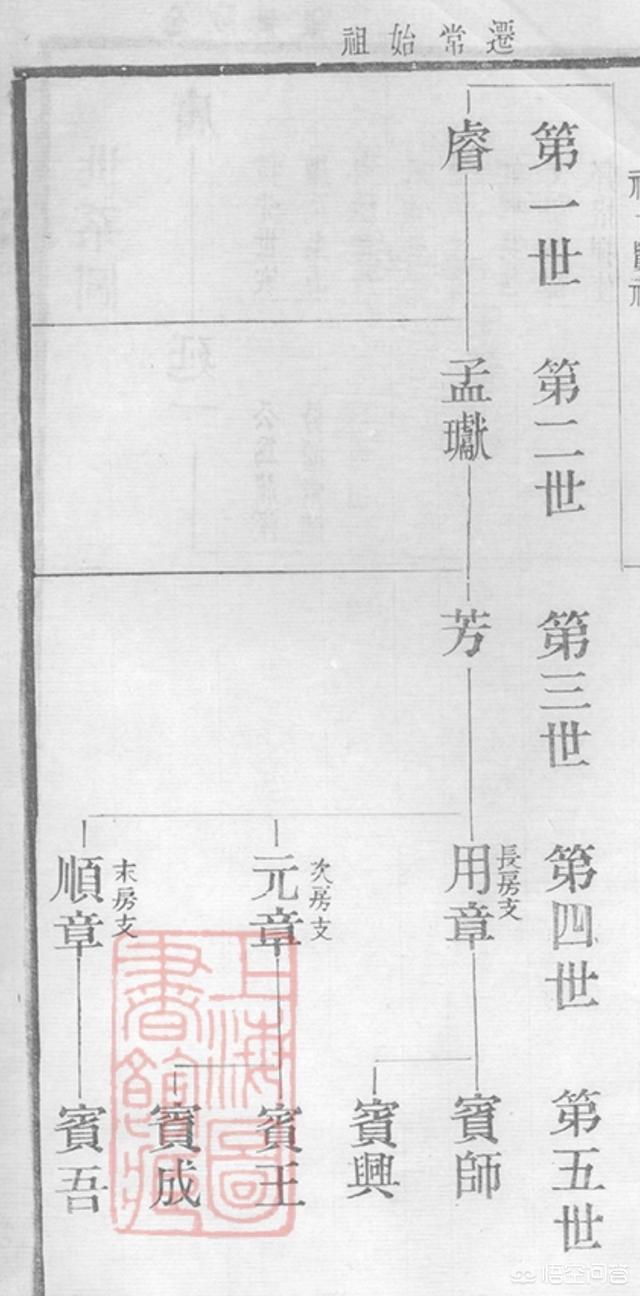 遷常始祖
第一世
睿
第二世
孟瓛
第三世
芳
第四世
長房支
用章
次房支
元章
末房支
順章
第五世
賓師
賓興
賓王
賓成
賓吾
上海圖
書館藏
悟空问答